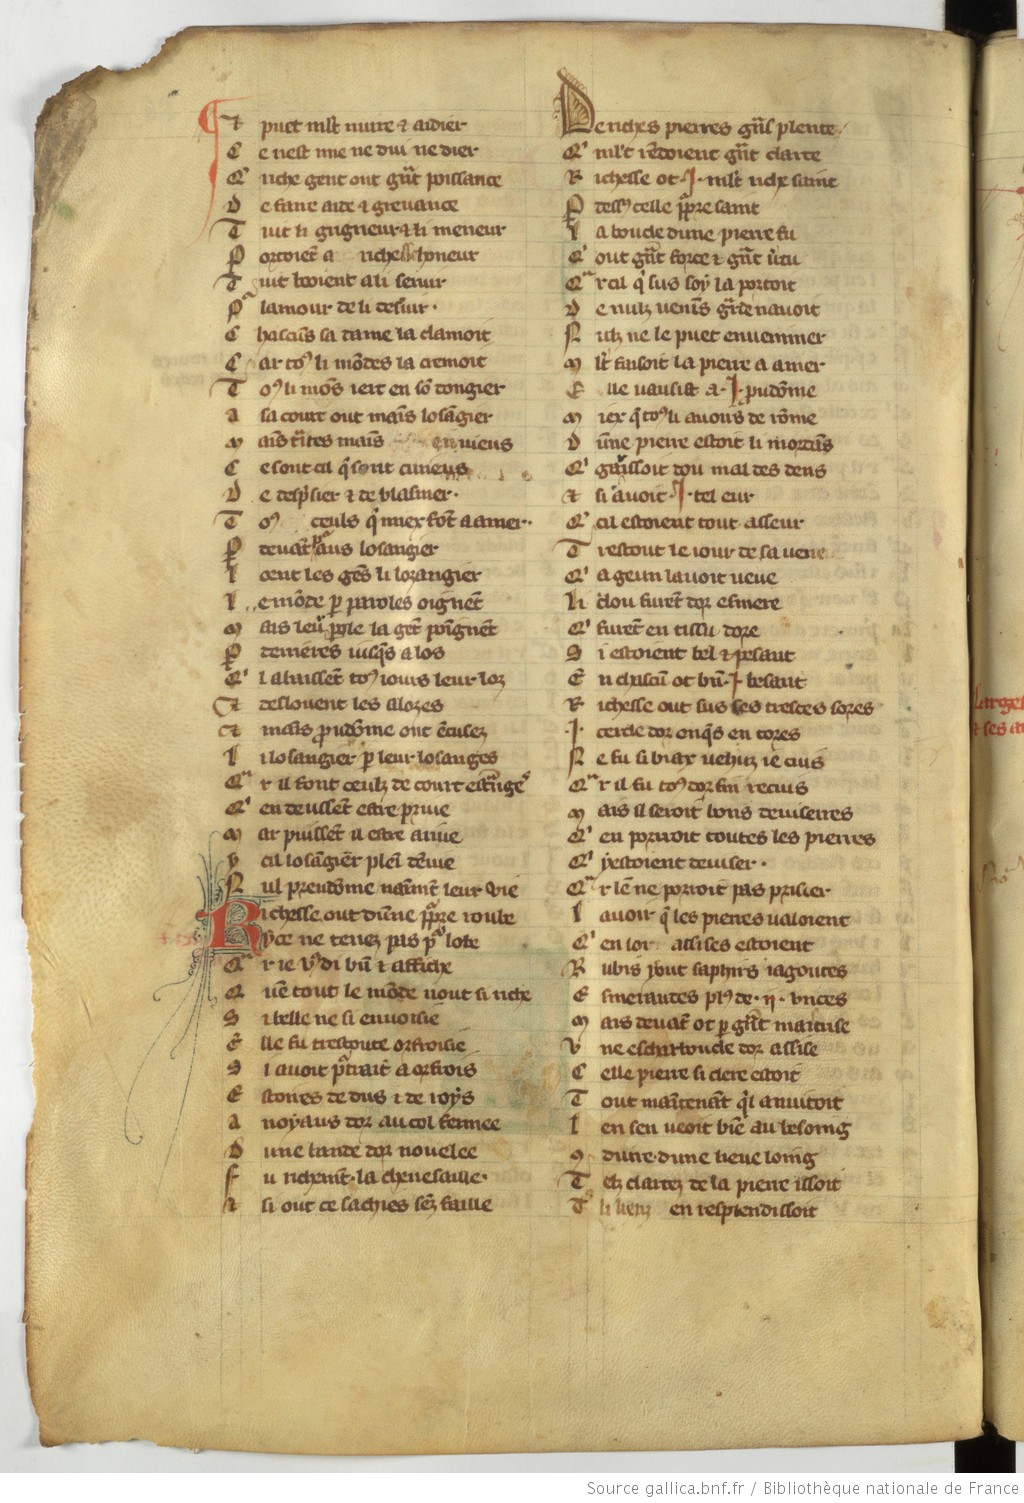 Et puet mlt nuire & aidier
Ce nest mie ne dui ne dier
Q' riche gent ont gͣnt poissance
De faire aide & grevance
Tuit li grigneur & li meneur
Portoiēt a richesse honeur
Tuit beoient a li servir
Pͬ lamour de li desſvir.
Chascuns sa dame la clamoit
Car toꝰ li mōdes la cremoit
Toꝰ li mōs iert en sō dongier
A sa court out mains losāgier
Mais trites mais envieus
Ce sont cil q' sont curieus
De despͥsier & de blasmer.
Toꝰ ceuls q' miex fōt a amer.
Ꝑ devāt pͬ aus losangier
Loent les gēs li lozangier
Le mōde ꝑ paroles oignēt
Mais leuͬ ꝑole la gēt poīgnēt
Ꝑ derrieres iusqs a los
Q' l abaissent toꝰ iours leur loz
Et deslouent les alozes
Et mais prudōme ont ēcusez
Li losangier ꝑ leur losanges
Qͣr il font ceulz de court estͣnges
Q' en deussēt estre prive
Mar puissēt il estre arive
V cil losāgier plei dēvie
Nul preudōme naimēt leur vie
Richesse out dune pͦpre roube
Vce ne tenez pas pͬ lobe
Qͣr ie vꝰ di bn̄ & affiche
Quē tout le mōde nout si riche
Si belle ne si envoisie
Elle fu trestoute orfroisie
Si avoit ptrait a orfrois
Estoires de dus & de roys
A noyaus dor au col fermee
Dune bande dor nouelee
Fu richemt. la chevesaille.
A si out ce sachies sēz faille
De riches pierres gͣns plente.
Q' mlt rēdoient gͣnt clarte
Richesse ot .I. mlt riche saint
Ꝑ dessꝰ celle pͦpre saint
La boucle dune pierre fu
Q' out gͣnt force & gͣnt v̓tu
Qͣr cil q' sus soy la portoit
De nulz venins gͣrde navoit
Nulz ne le puet envenimer
Mlt faisoit la pierre a amer
Elle vausist a .I. prudōme
Miex q' toꝰ li avoirs de rōme
Dūne pierre estoit li mordās
Q' garissoit dou mal des dens
Et si avoit .I. tel eur
Q' cil estoient tout asseur
Trestout le iour de sa veue
Q' a geun lavoit veue
Li clou furēt dor esmere
Q' furēt en tissu dore
Si estoient bel & pesant
En chascū ot bn̄ .I. besant
Richesse out sus ses tresces sores
.I. cercle dor onqs en cores
Ne fu si biax vehuz ie cuis
Qͣr il fu toꝰ dor fin recuis
Mais il seroit bons deviserres
Q' en porroit toutes les pierres
Q' y estoient deviser.
Qͣr lē ne porroit pas prisier
Lavoir q' les pierres valoient
Q' en lor assises estoient
Rubis y out saphirs iagonces
Esmeraudes plꝰ de .ii. unces
Mais devāt ot ꝑ gͣnt maitrise
Une escharboucle dor assise
Celle pierre si clere estoit
Tout maītenāt q'l anuitoit
Len sen veoit biē au besoing
Ꝯdure dune lieue loing
Telz clartez de la pierre issoit
Q' li en resplendissoit